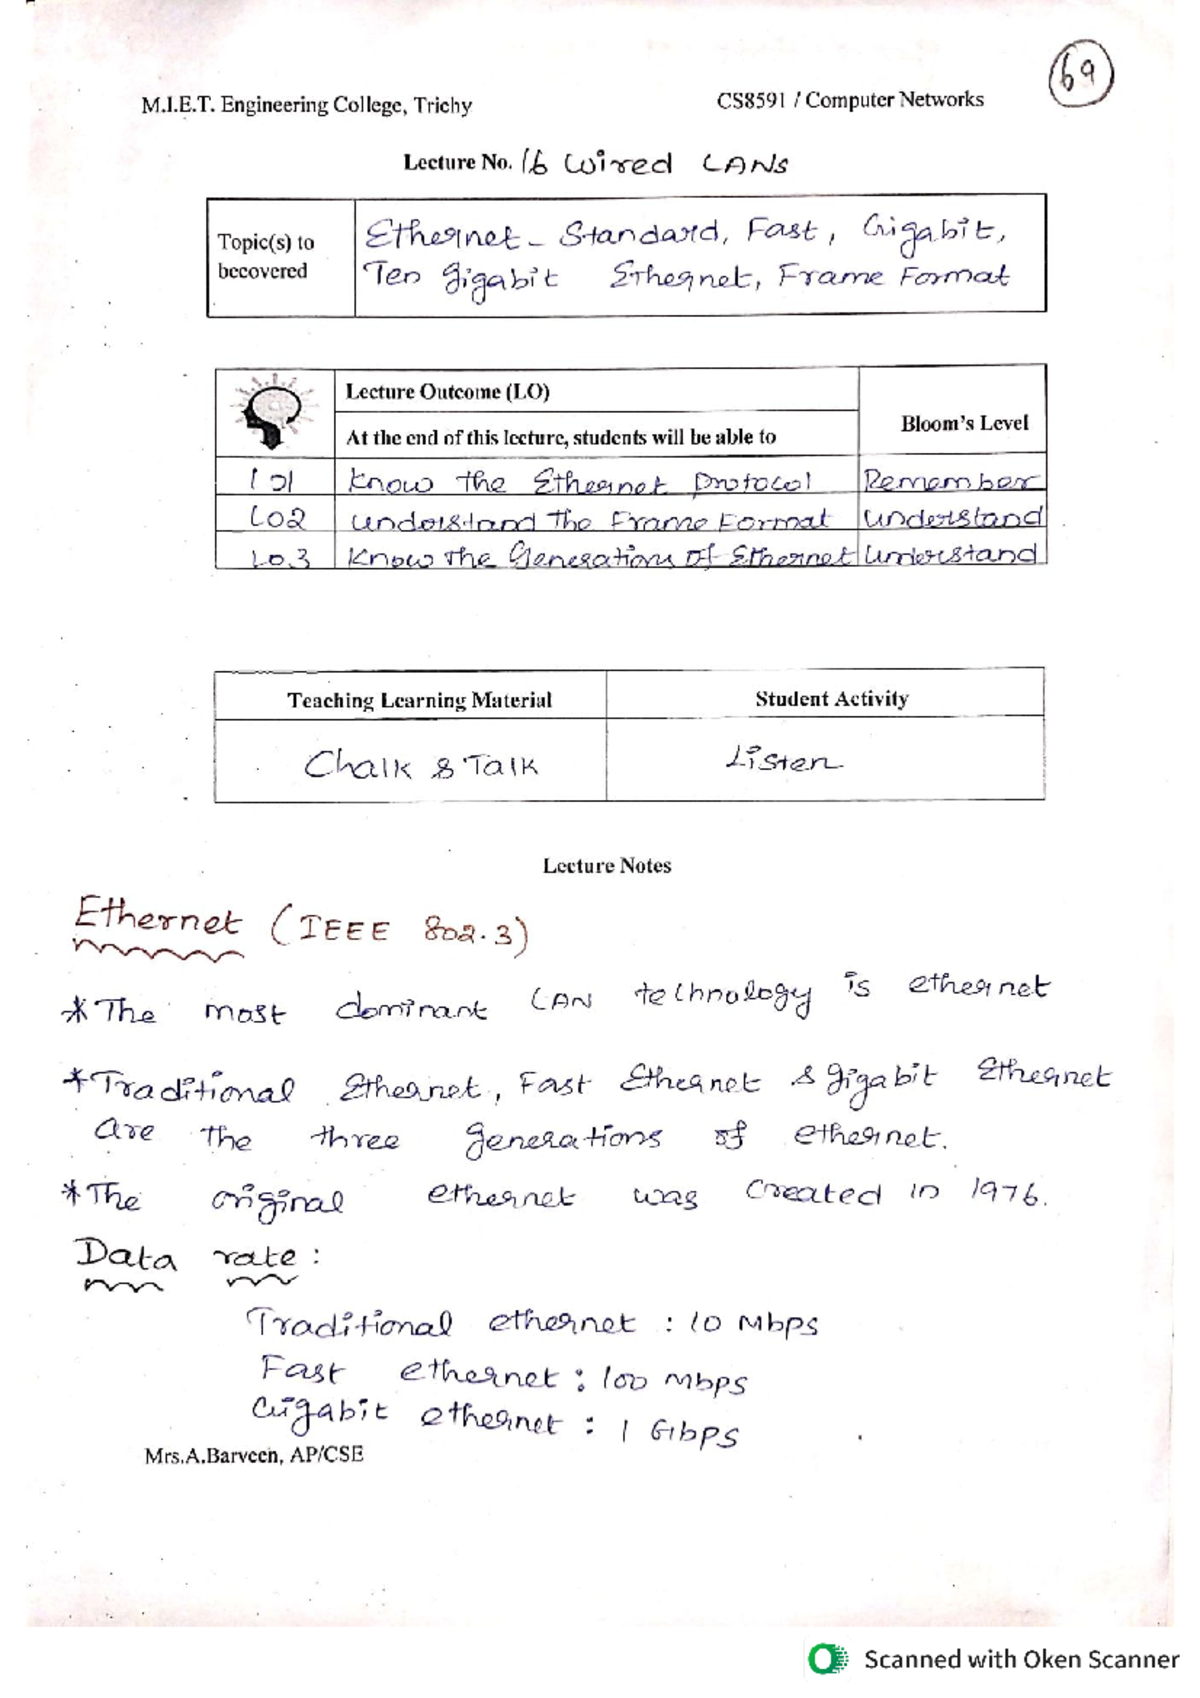 69
M.I.E.T. Engineering College, Trichy
CS8591 / Computer Networks
Lecture No. 16 Wired LANs
Topic(s) to becovered
Ethernet - Standard, Fast, Gigabit,
Ten Gigabit Ethernet, Frame Format
Lecture Outcome (LO)
At the end of this lecture, students will be able to
Bloom's Level
LO1 Know the Ethernet Protocol Remember
LO2 Understand The Frame Format Understand
LO3 Know The Generations of Ethernet Understand
Teaching Learning Material
Student Activity
Chalk & Talk
Listen
Lecture Notes
Ethernet (IEEE 802.3)
* The most dominant LAN technology is ethernet
* Traditional Ethernet, Fast Ethernet & Gigabit Ethernet
are the three generations of ethernet.
* The original ethernet was created in 1976.
Data rate :
Traditional ethernet : 10 Mbps
Fast ethernet : 100 Mbps
Gigabit ethernet : 1 Gbps
Mrs.A.Barveen, AP/CSE
Scanned with Oken Scanner